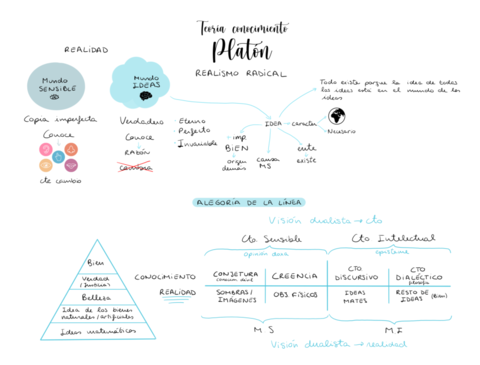 Teoría conocimiento
Platón
REALISMO RADICAL
REALIDAD
Mundo
SENSIBLE
Mundo
IDEAS
Copia imperfecta
Conoce
cte cambio
Verdadero
Conoce
RAZÓN
Eterno
Perfecto
Invariable
IDEA
caracter
Todo existe porque la idea de todas
las ideas está en el mundo de las
ideos
Necesario
imp
BIEN
origen
demás
causa
MS
ente
existe
ALEGORÍA DE LA LÍNEA
Visión dualista → cto
Cto Sensible
Cto Intelectual
Opinión doxa
episteme
CONOCIMIENTO
CONJETURA
CREENCIA
CTO
DISCURSIVO
CTO
DIALÉCTICO
filosofía
REALIDAD
SOMBRAS/
IMÁGENES
OBJ. FÍSICOS
IDEAS
MATES
RESTO DE
IDEAS (Bien)
M.S
M.I
Visión dualista → realidad
Bien
Verdad
/Justicia
Belleza
Idea de los bienes
naturales/artificiales
Ideas matemáticas